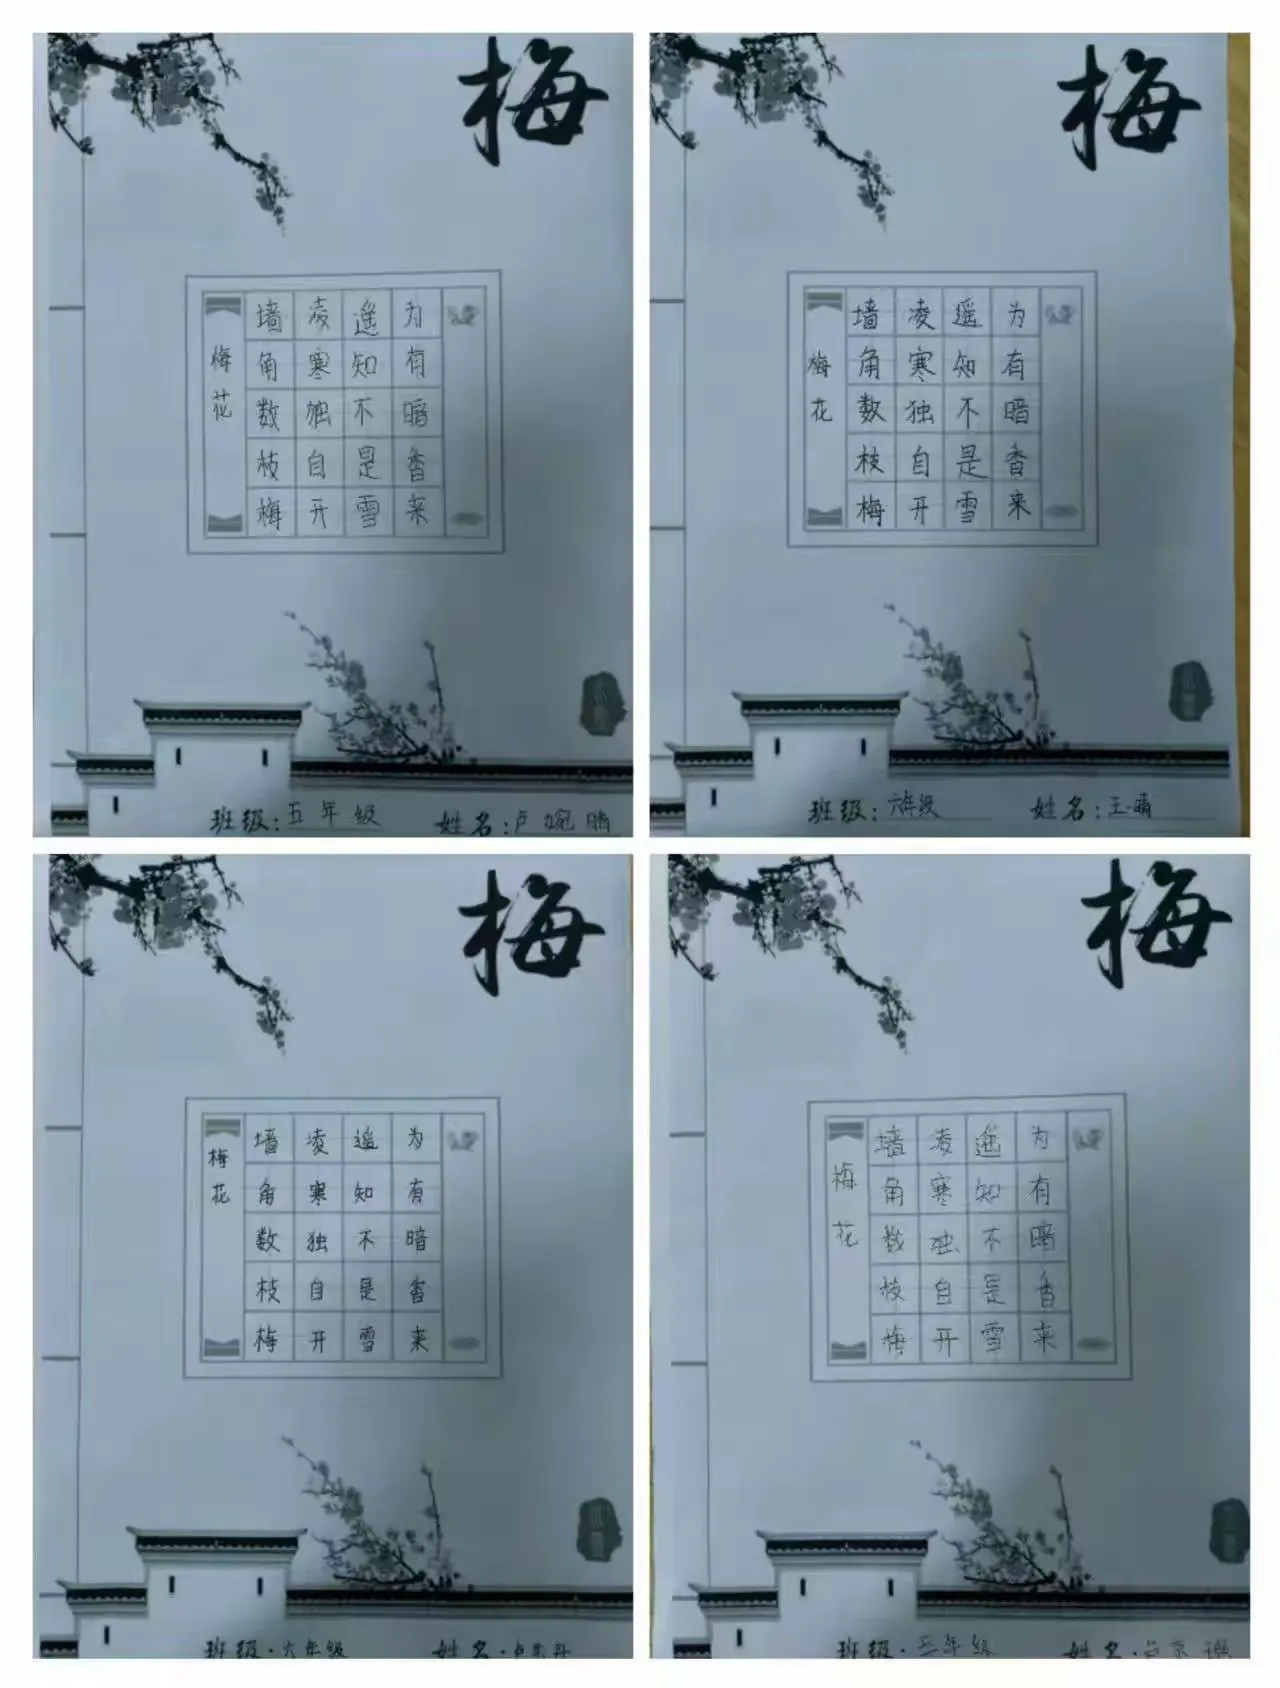 梅
梅花
墙角数枝梅
凌寒独自开
遥知不是雪
为有暗香来
班级:五年级 姓名:卢婉晴
梅
梅花
墙角数枝梅
凌寒独自开
遥知不是雪
为有暗香来
班级:六年级 姓名:王一晴
梅
梅花
墙角数枝梅
凌寒独自开
遥知不是雪
为有暗香来
班级:六年级 姓名:
梅
梅花
墙角数枝梅
凌寒独自开
遥知不是雪
为有暗香来
班级:五年级 姓名: